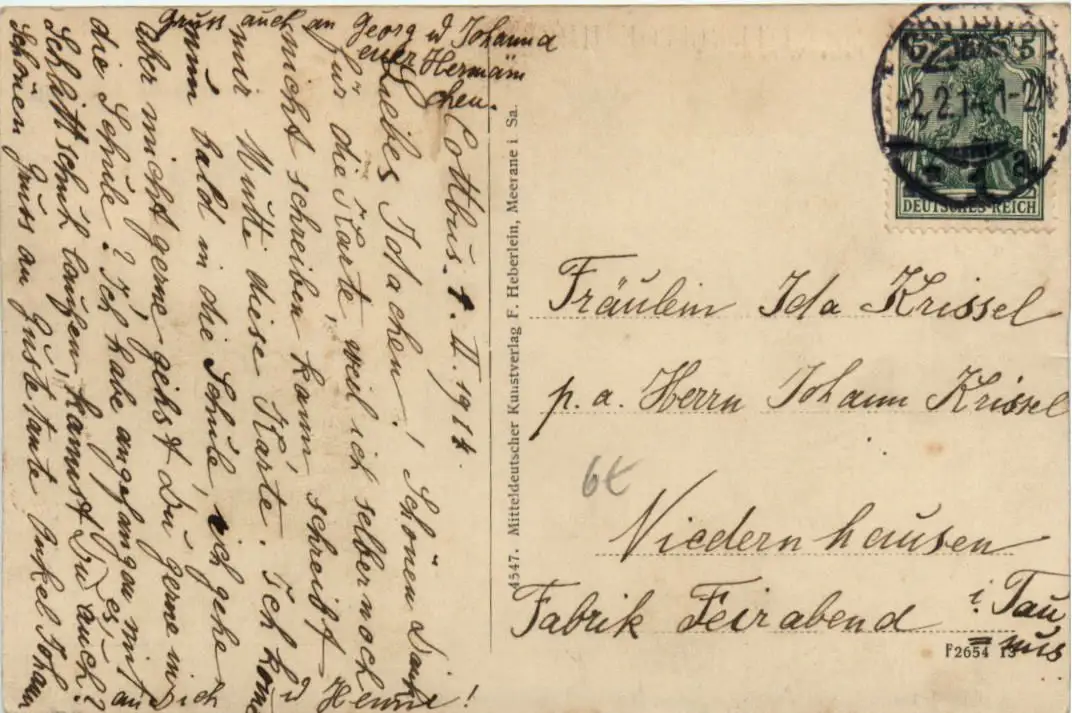 Cottbus. 1. II. 1914.
Liebes Idachen! Schönen Dank
für die Karte, weil ich selber noch
nicht schreiben kann, schreibt
mir Mutti diese Karte. Ich kome
nun bald in die Schule, ich gehe
aber nicht gerne, gehst Du gerne in
die Schule? Ich habe angefangen mit
Schlittschuh laufen, kannst Du es auch?
Schönen Gruss an Guste tante Onkel Johann
u Henne!
an Dich
Gruss auch an Georg u Johanna
euer Hermän
chen.
4547. Mitteldeutscher Kunstverlag F. Heberlein, Meerane i Sa.
5 5
2.2.14. 1-2
1
a
DEUTSCHES REICH
Fräulein Ida Krissel
p. a. Herrn Johann Krissel
6€
Niedernhausen
i. Tau
nus
Fabrik Feirabend
F2654 13